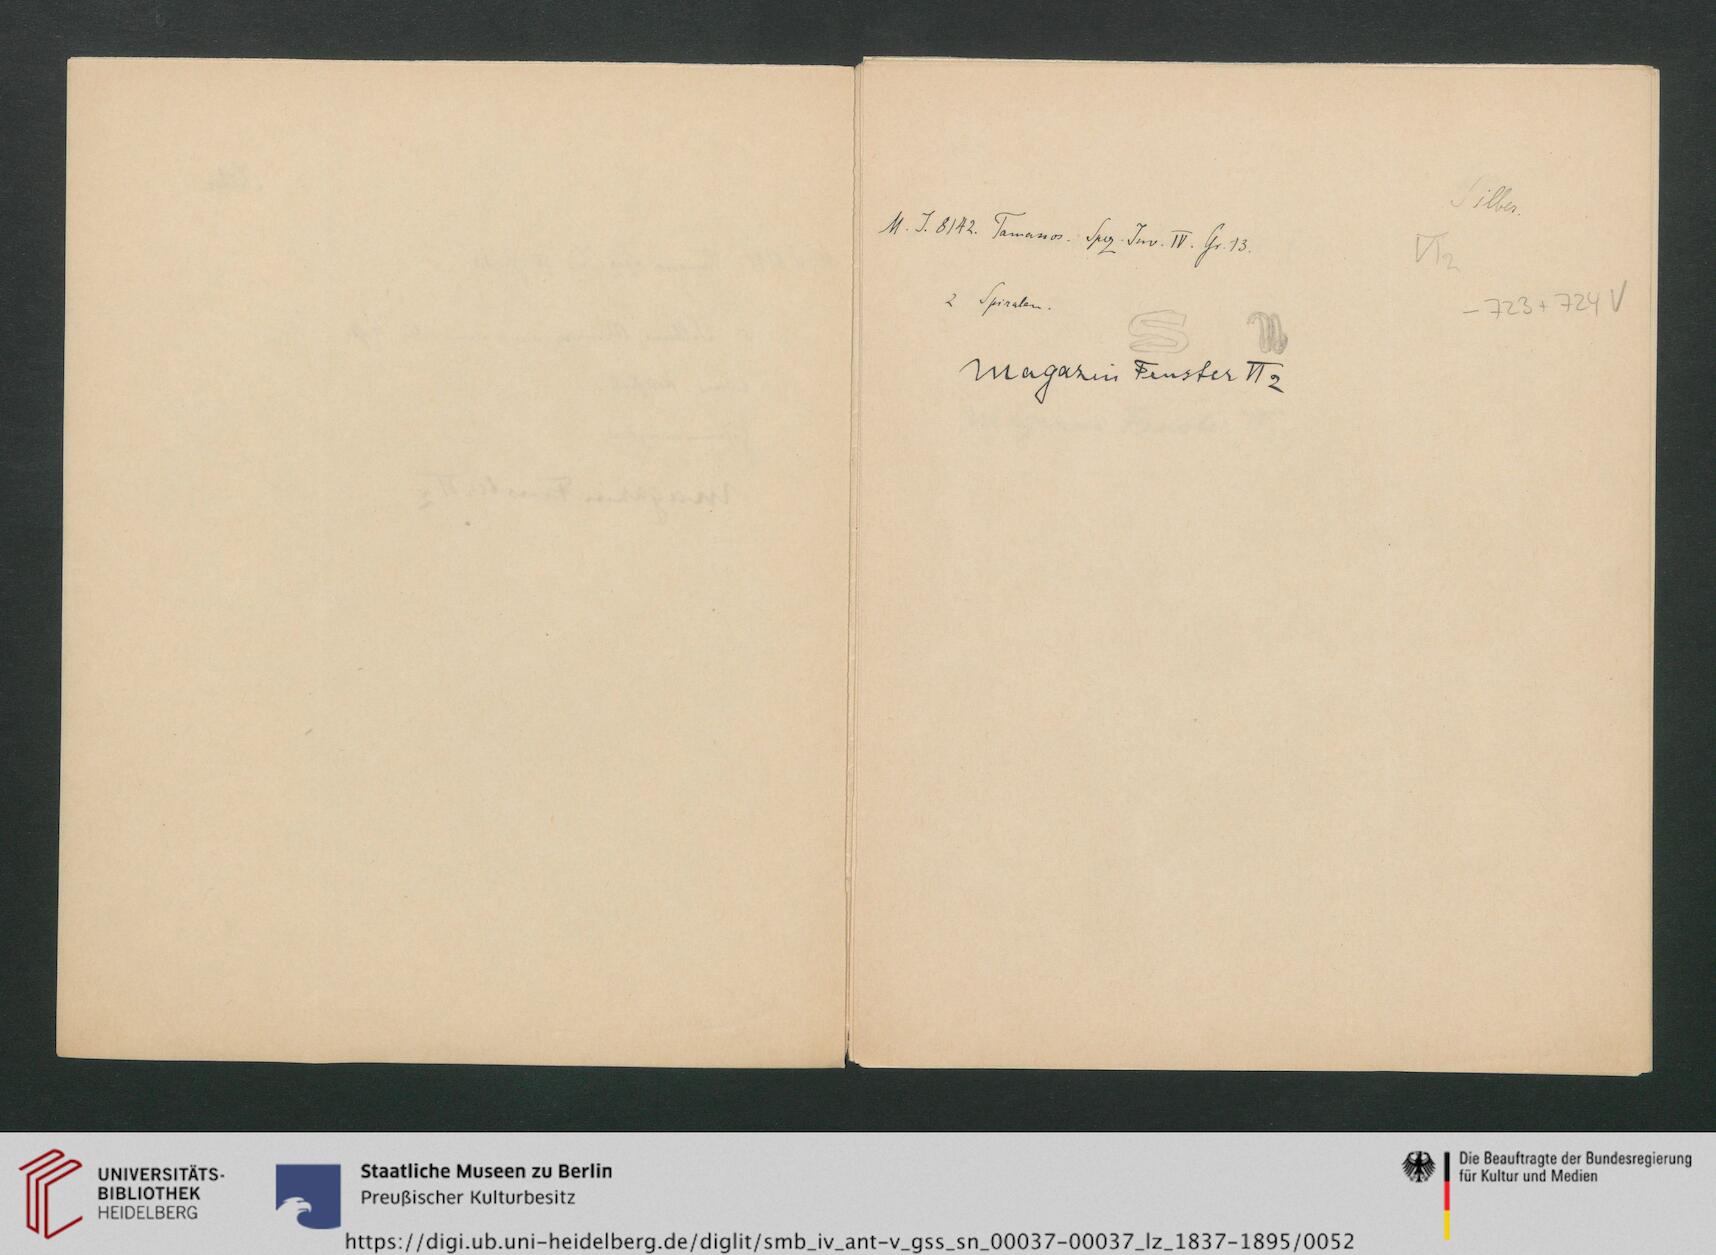 Silber.
M. I. 8142. Tamassos. Spez. Inv. IV. Gr. 13.
VI2
2 Spiralen.
- 723 + 724 V
Magazin Fenster VI2
UNIVERSITÄTS-
BIBLIOTHEK
HEIDELBERG
Staatliche Museen zu Berlin
Preußischer Kulturbesitz
Die Beauftragte der Bundesregierung
für Kultur und Medien
https://digi.ub.uni-heidelberg.de/diglit/smb_iv_ant-v_gss_sn_00037-00037_lz_1837-1895/0052